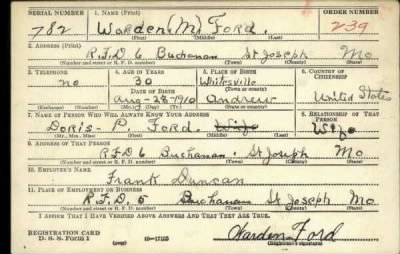 SERIAL NUMBER 1. NAME (Print) ORDER NUMBER
782 Warden (M) Ford. 239
(First) (Middle) (Last)
2. ADDRESS (Print)
R.F.D 6 Buchanan St Joseph Mo
(Number and street or R. F. D. number) (Town) (County) (State)
3. TELEPHONE 4. AGE IN YEARS 5. PLACE OF BIRTH 6. COUNTRY OF CITIZENSHIP
no 30 Whitesville
DATE OF BIRTH (Town or county)
Aug-28-1910 Andrew United States
(Exchange) (Number) (Mo.) (Day) (Yr.) (State or country)
7. NAME OF PERSON WHO WILL ALWAYS KNOW YOUR ADDRESS 8. RELATIONSHIP OF THAT PERSON
Doris- P Ford. Wife Wife
(Mr., Mrs., Miss) (First) (Middle) (Last)
9. ADDRESS OF THAT PERSON
R.F.D 6 Buchanan. St Joseph Mo
(Number and street or R. F. D. number) (Town) (County) (State)
10. EMPLOYER'S NAME
Frank Duncan
11. PLACE OF EMPLOYMENT OR BUSINESS
R.F.D. 5 Buchanan St Joseph Mo.
(Number and street or R. F. D. number) (Town) (County) (State)
I AFFIRM THAT I HAVE VERIFIED ABOVE ANSWERS AND THAT THEY ARE TRUE.
REGISTRATION CARD
D. S. S. Form 1 (over) 16-17105 Warden Ford
(Registrant's signature)